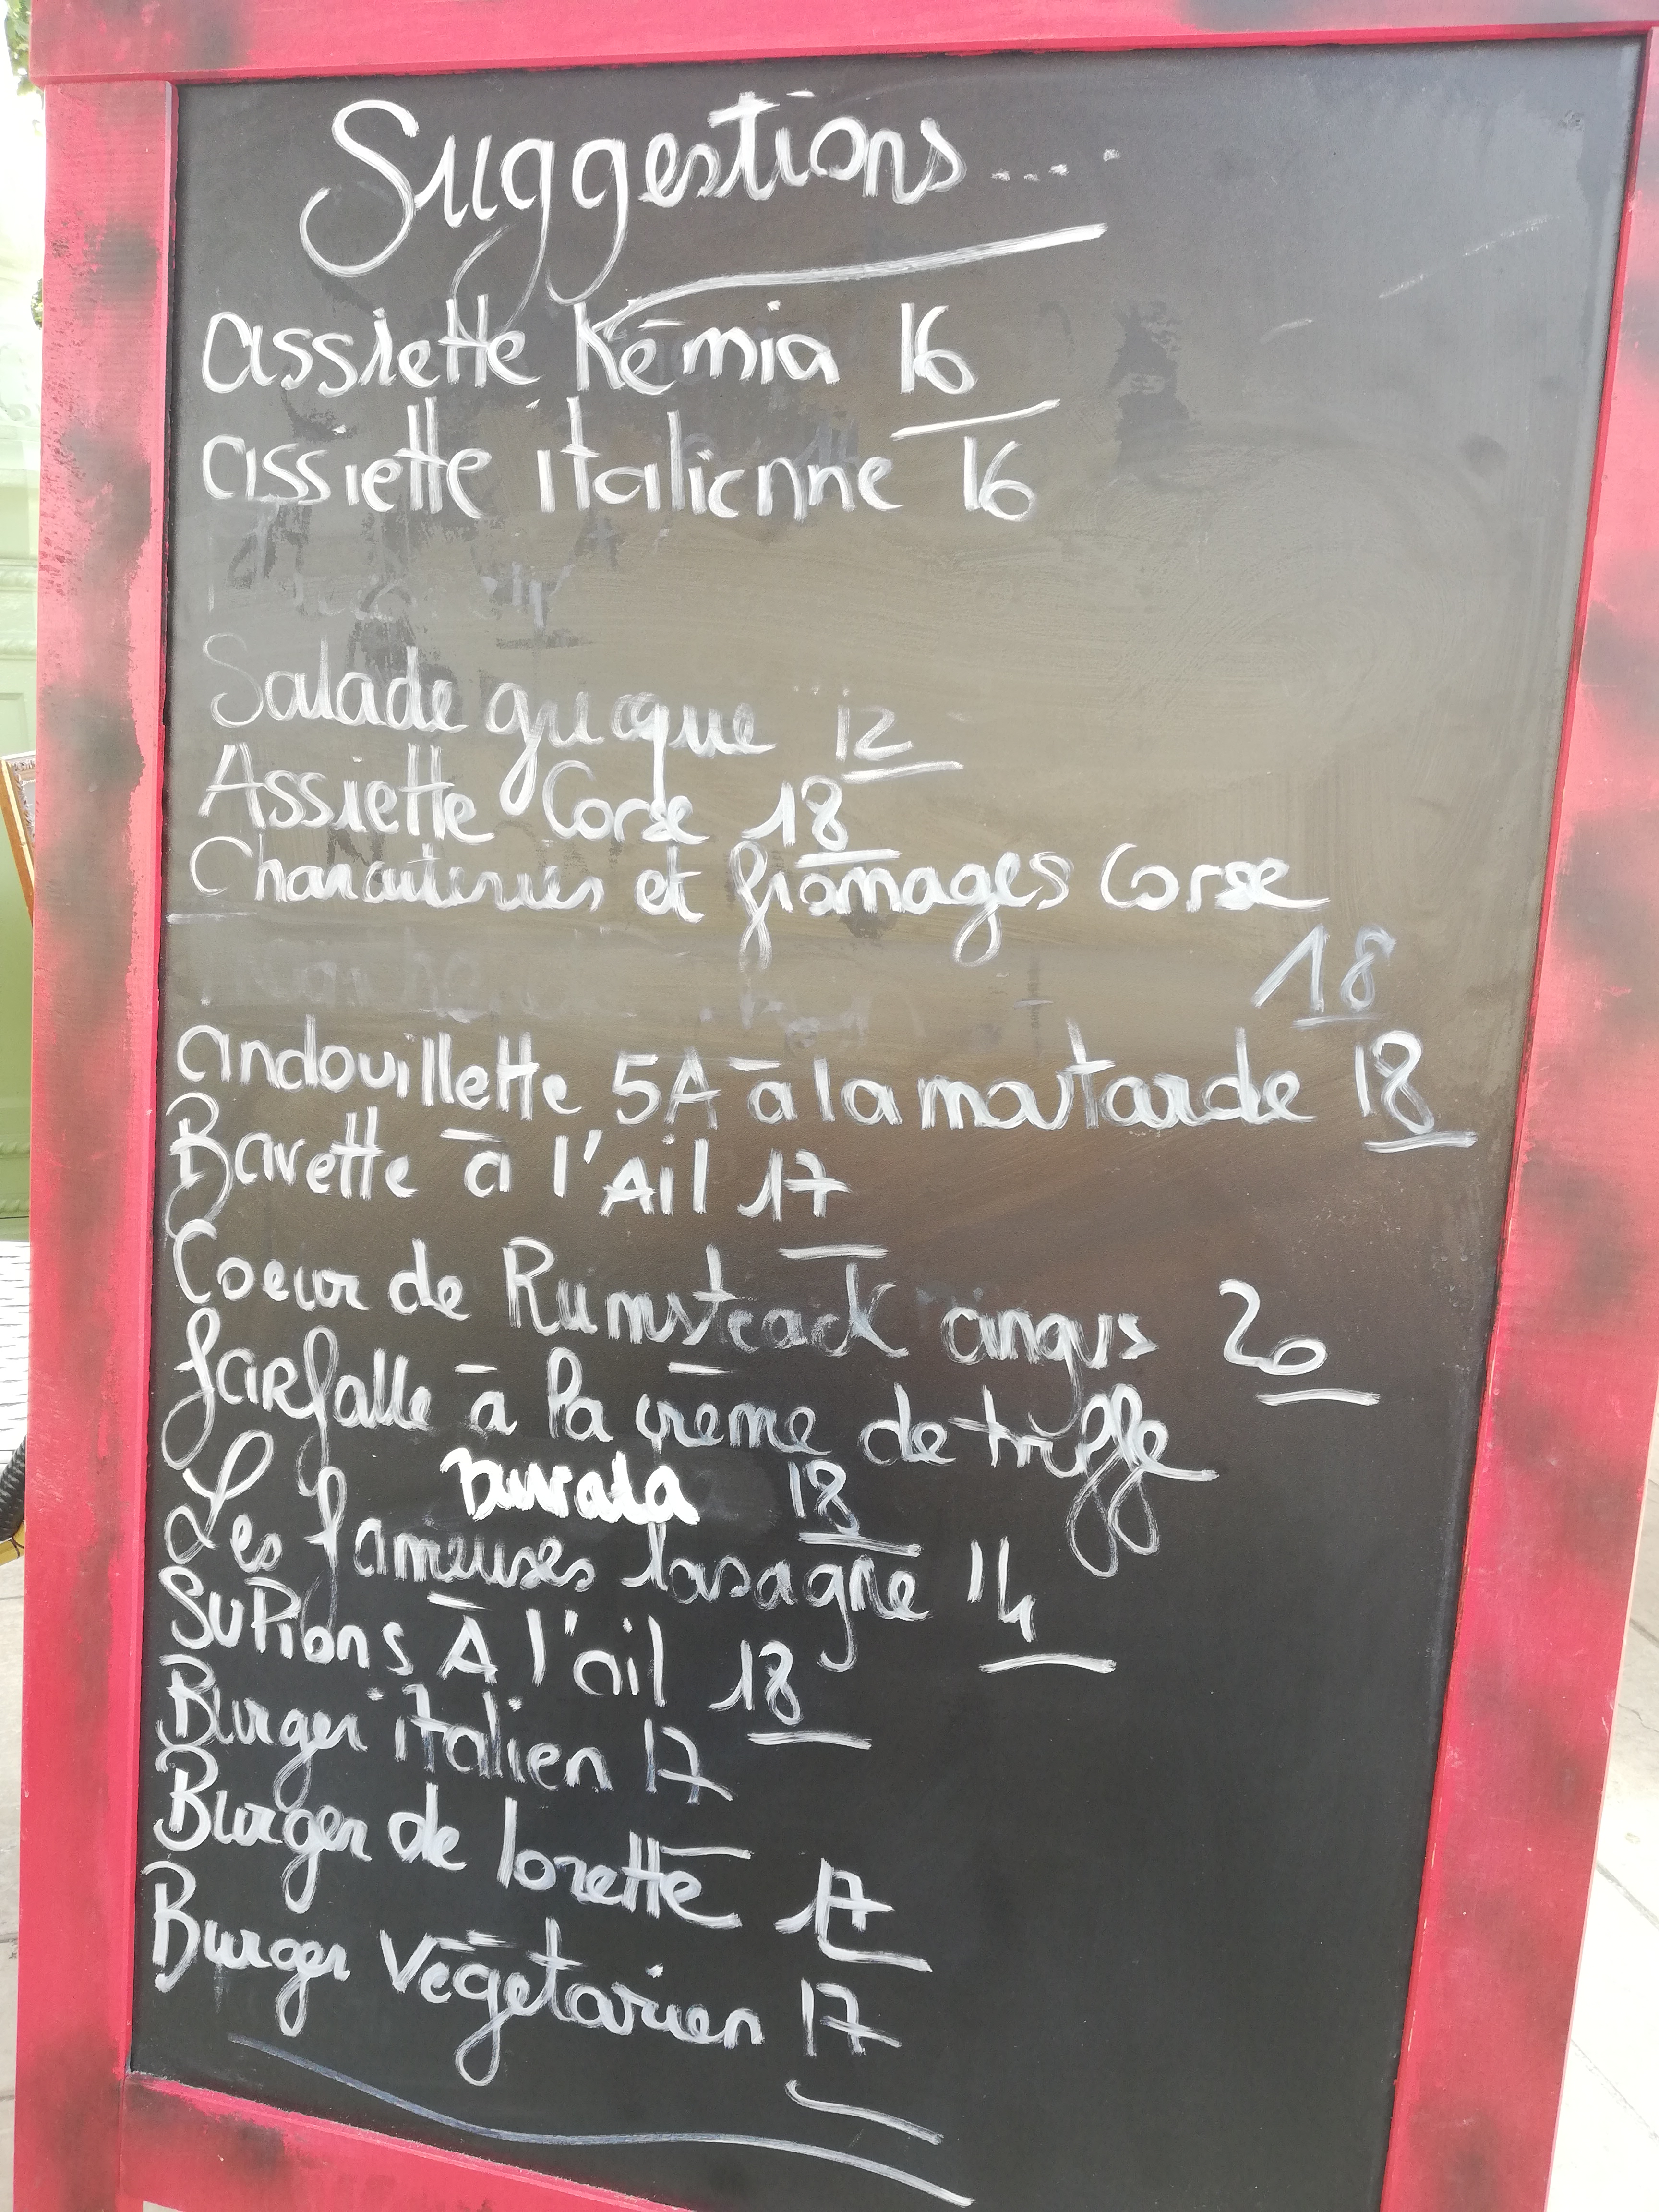 Suggestions....
assiette Kémia 16
assiette italienne 16
Salade grecque 12
Assiette Corse 18
Charcuteries et fromages Corse
18
andouillette 5A à la moutarde 18
Bavette à l'Ail 17
Coeur de Rumsteack angus 20
farfalle à la crème de truffe
Burrata 18
Les fameuses lasagne 14
SuPions À l'ail 18
Burger italien 17
Burger de lorette 17
Burger végétarien 17